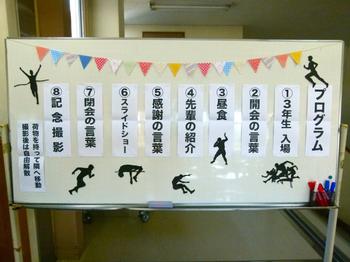 プログラム
①3年生 入場
②開会の言葉
③昼食
④先輩の紹介
⑤感謝の言葉
⑥スライドショー
⑦閉会の言葉
⑧記念撮影
荷物を持って隣へ移動
撮影後は自由解散